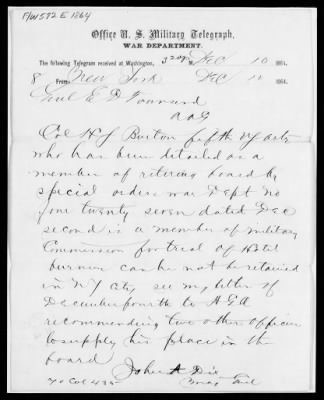 F/W 572 E 1864
Office U. S. Military Telegraph,
WAR DEPARTMENT.
The following Telegram received at Washington, 320P M. Dec 10 1864.
8 From New York Dec 10 1864.
Genl E D Townsend
AAG
Col H S Burton fifth US arty
who has been detailed as a
member of retiring board by
special orders war Dept No
four twenty seven dated Dec
second is a member of military
Commission for trial of Hotel
burners can he not be retained
in NY city see my letter of
December fourth to AGA
recommending two other officers
to supply his place in the
board
John A Dix
Maj Genl
70 Col 435